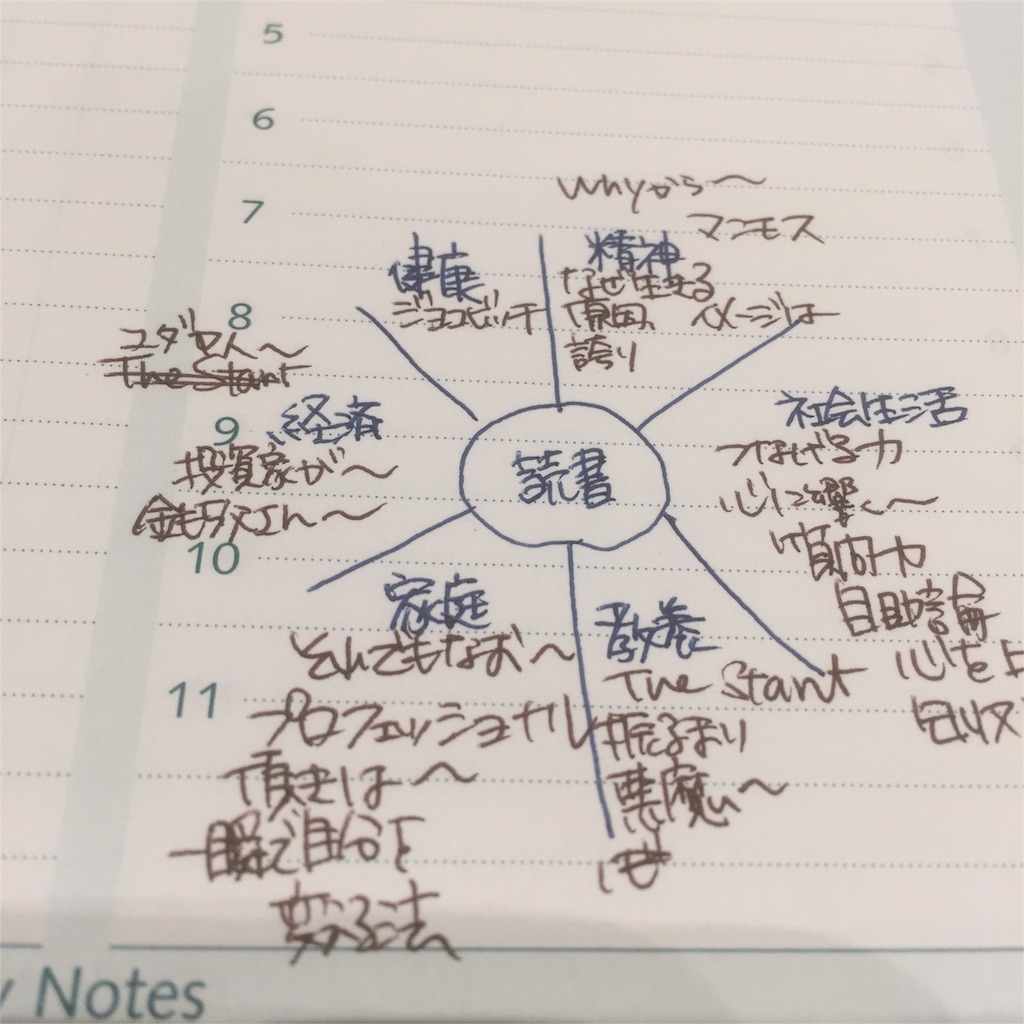 5
6
7
8
9
10
11
Whyから〜
マンモス
精神
なぜ生きる
原因、イメージは
誇り
健康
ジョコビッチ
ユダヤ人〜
The Start
経済
投資家が〜
読書
社会生活
つなげる力
心に響く〜
傾向力
自助論
心を上
家庭
それでもなお〜
プロフェッショナル
頂きは〜
一瞬で自分を
変える法
教養
The Start
振るまい
悪魔〜
y Notes